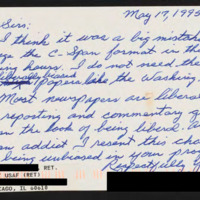 May 17, 1995
Sirs:
I think it was a big mistake
the C-Span format in the
hours. I do not need the
liberally biased papers like the Washing
Most newspapers are liberal
reporting and commentary
the book of being liberal.
addict I resent this
being unbiased in your
Respectfully
RET.
USAF (RET)
CAGO, IL 60618